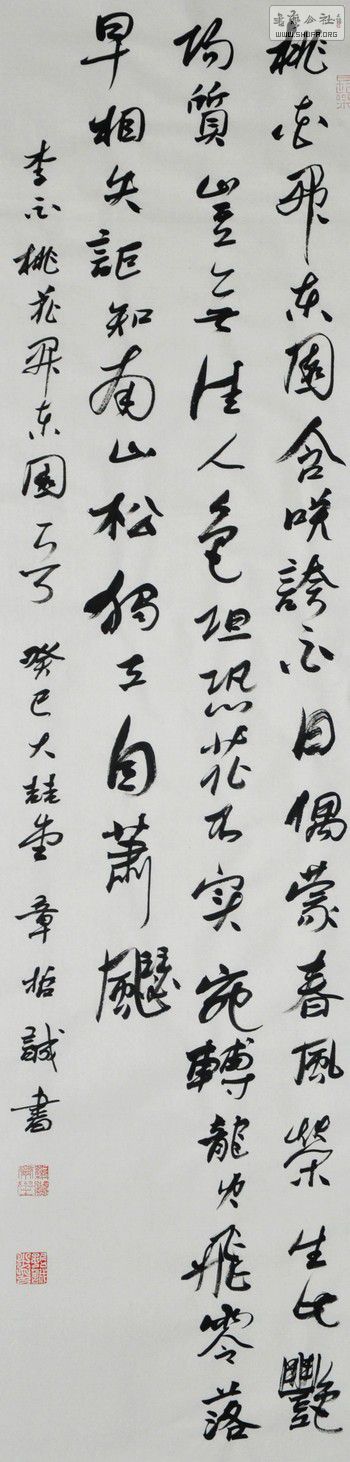 書法公社
WWW.SHUFA.ORG
桃花開東園含咲誇白日偶蒙春風榮生此艷
陽質豈無佳人色但恐花不實宛轉龍火飛零落
早相失詎知南山松獨立自蕭飋
李白桃花開東園 癸巳大 堂章 誠書